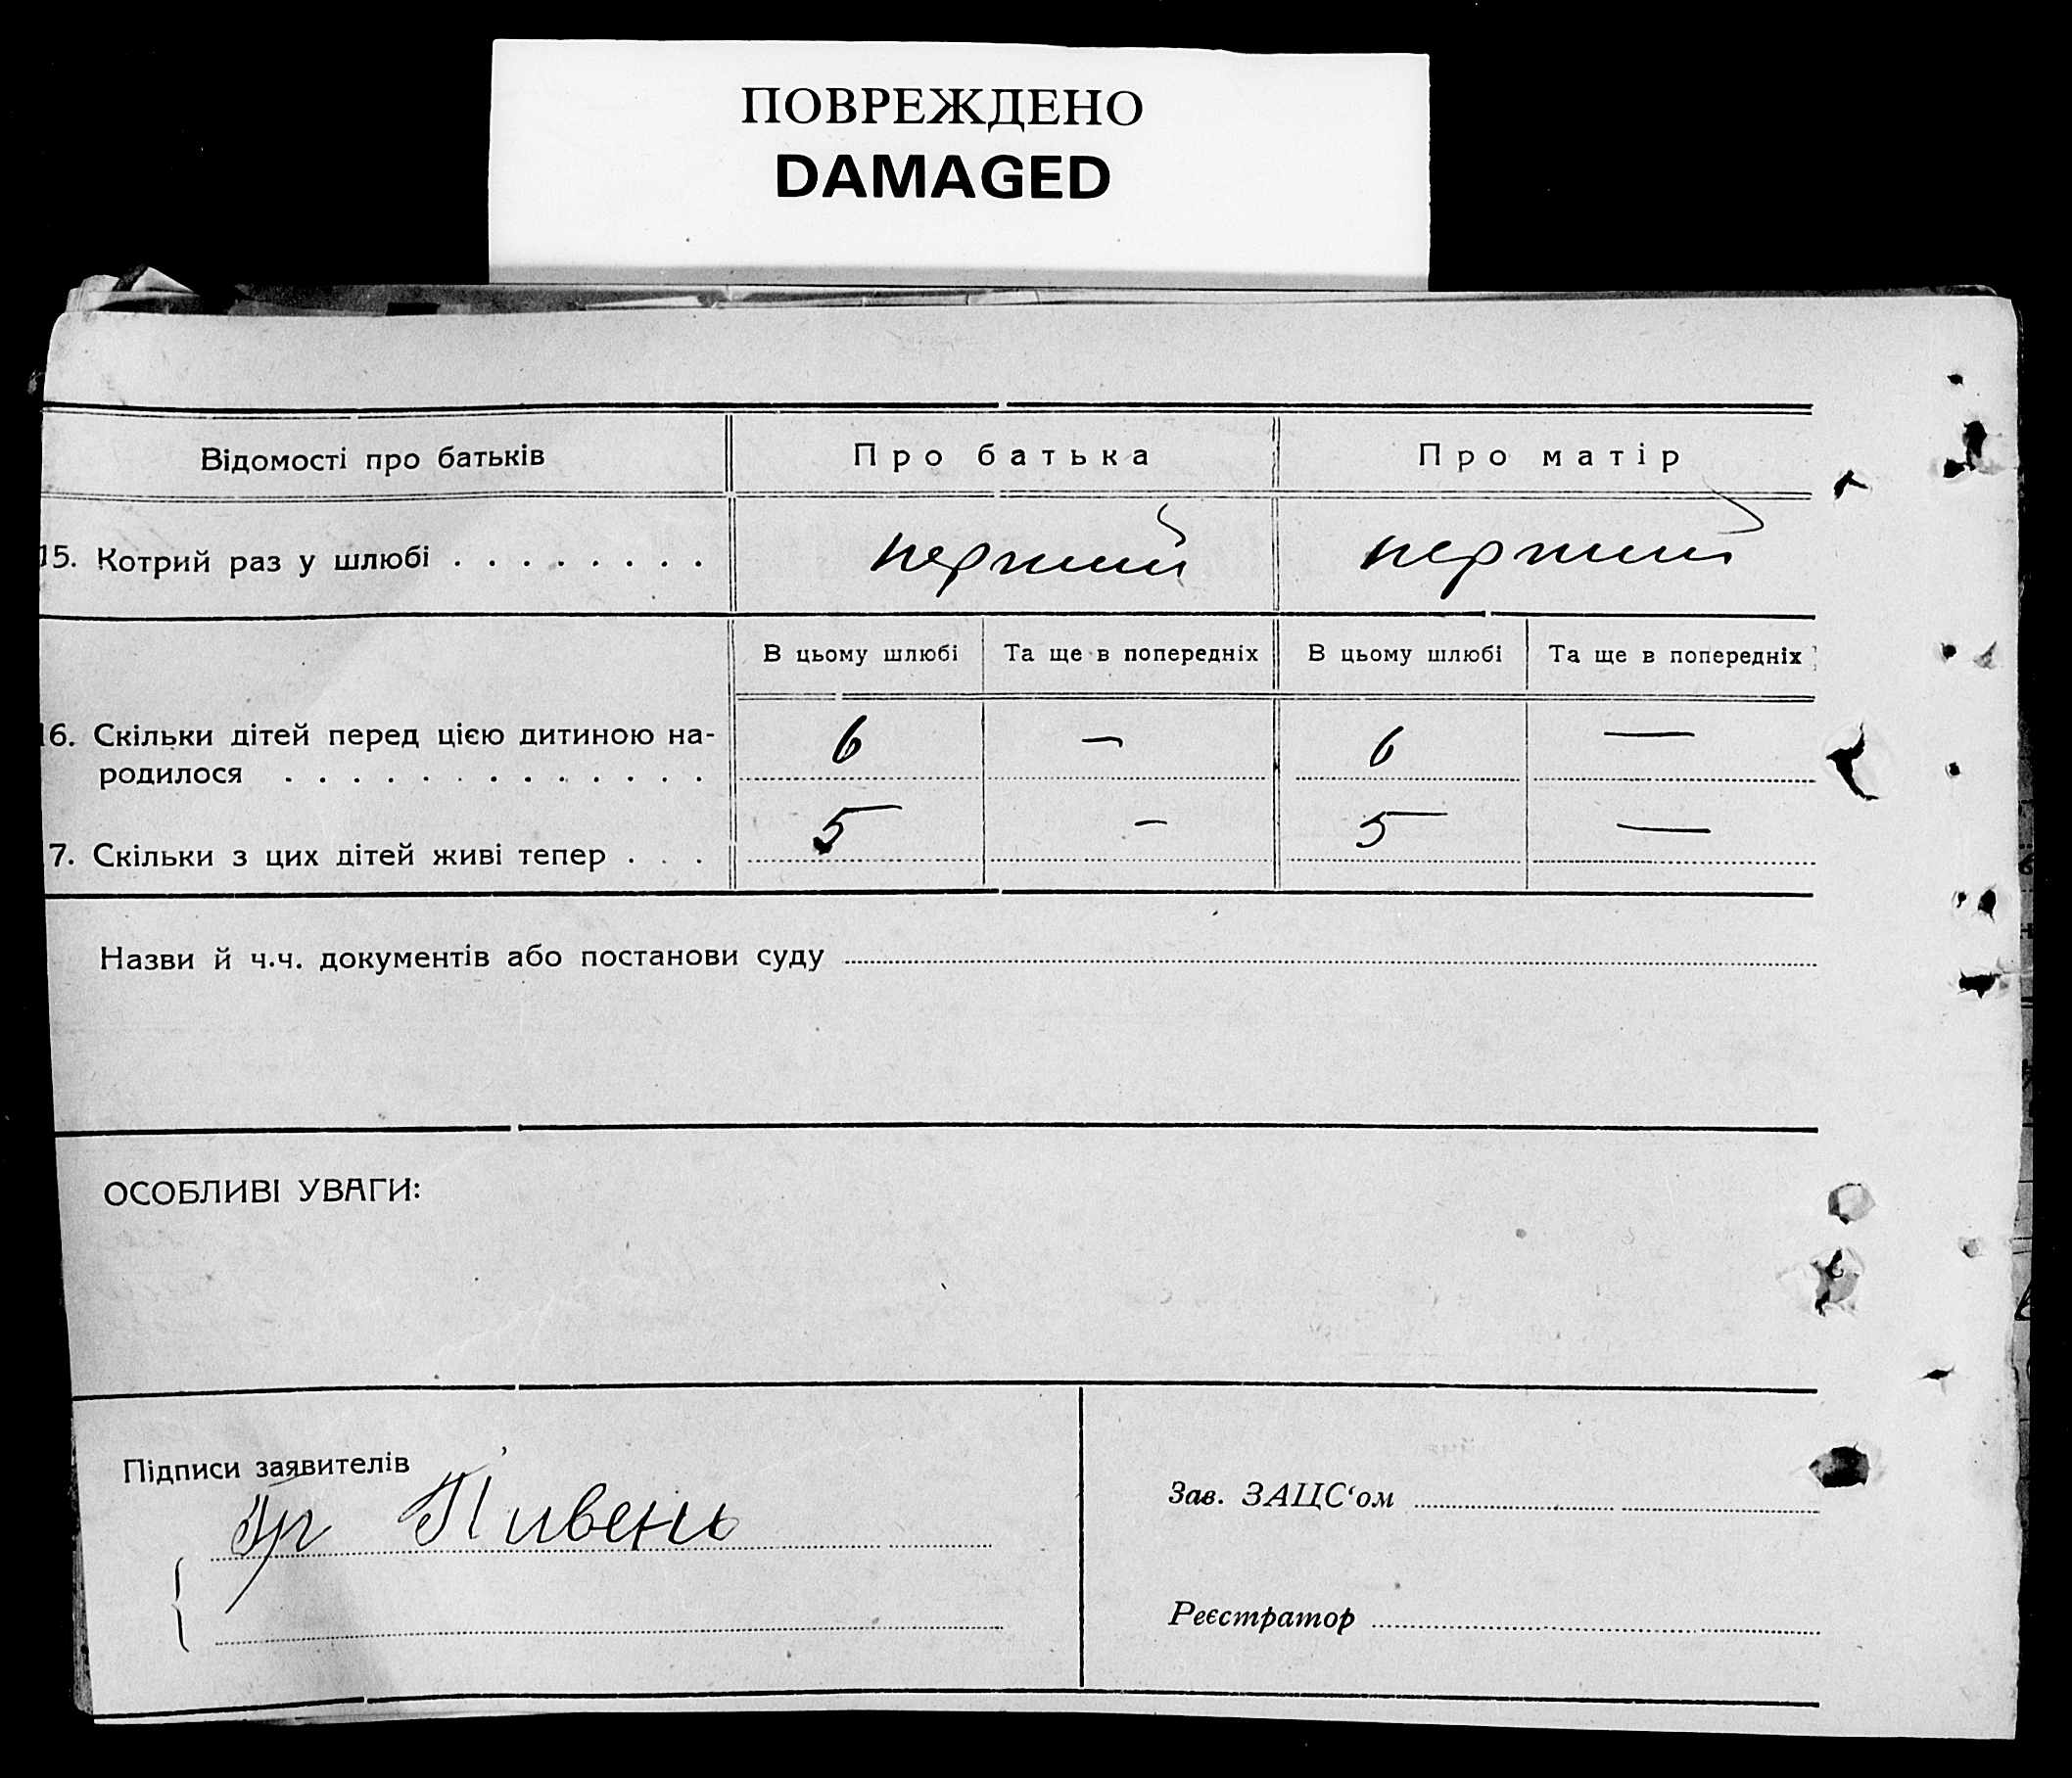 ПОВРЕЖДЕНО
DAMAGED
Відомості про батьків Про батька Про матір
15. Котрий раз у шлюбі . . . . . . . . перший перший
В цьому шлюбі Та ще в попередніх В цьому шлюбі Та ще в попередніх
16. Скільки дітей перед цією дитиною на-
родилося . . . . . . . . . . . . . 6 — 6 —
7. Скільки з цих дітей живі тепер . . . 5 — 5 —
Назви й ч.ч. документів або постанови суду
ОСОБЛИВІ УВАГИ:
Підписи заявителів
Пивень
Зав. ЗАЦС‘ом
Реєстратор